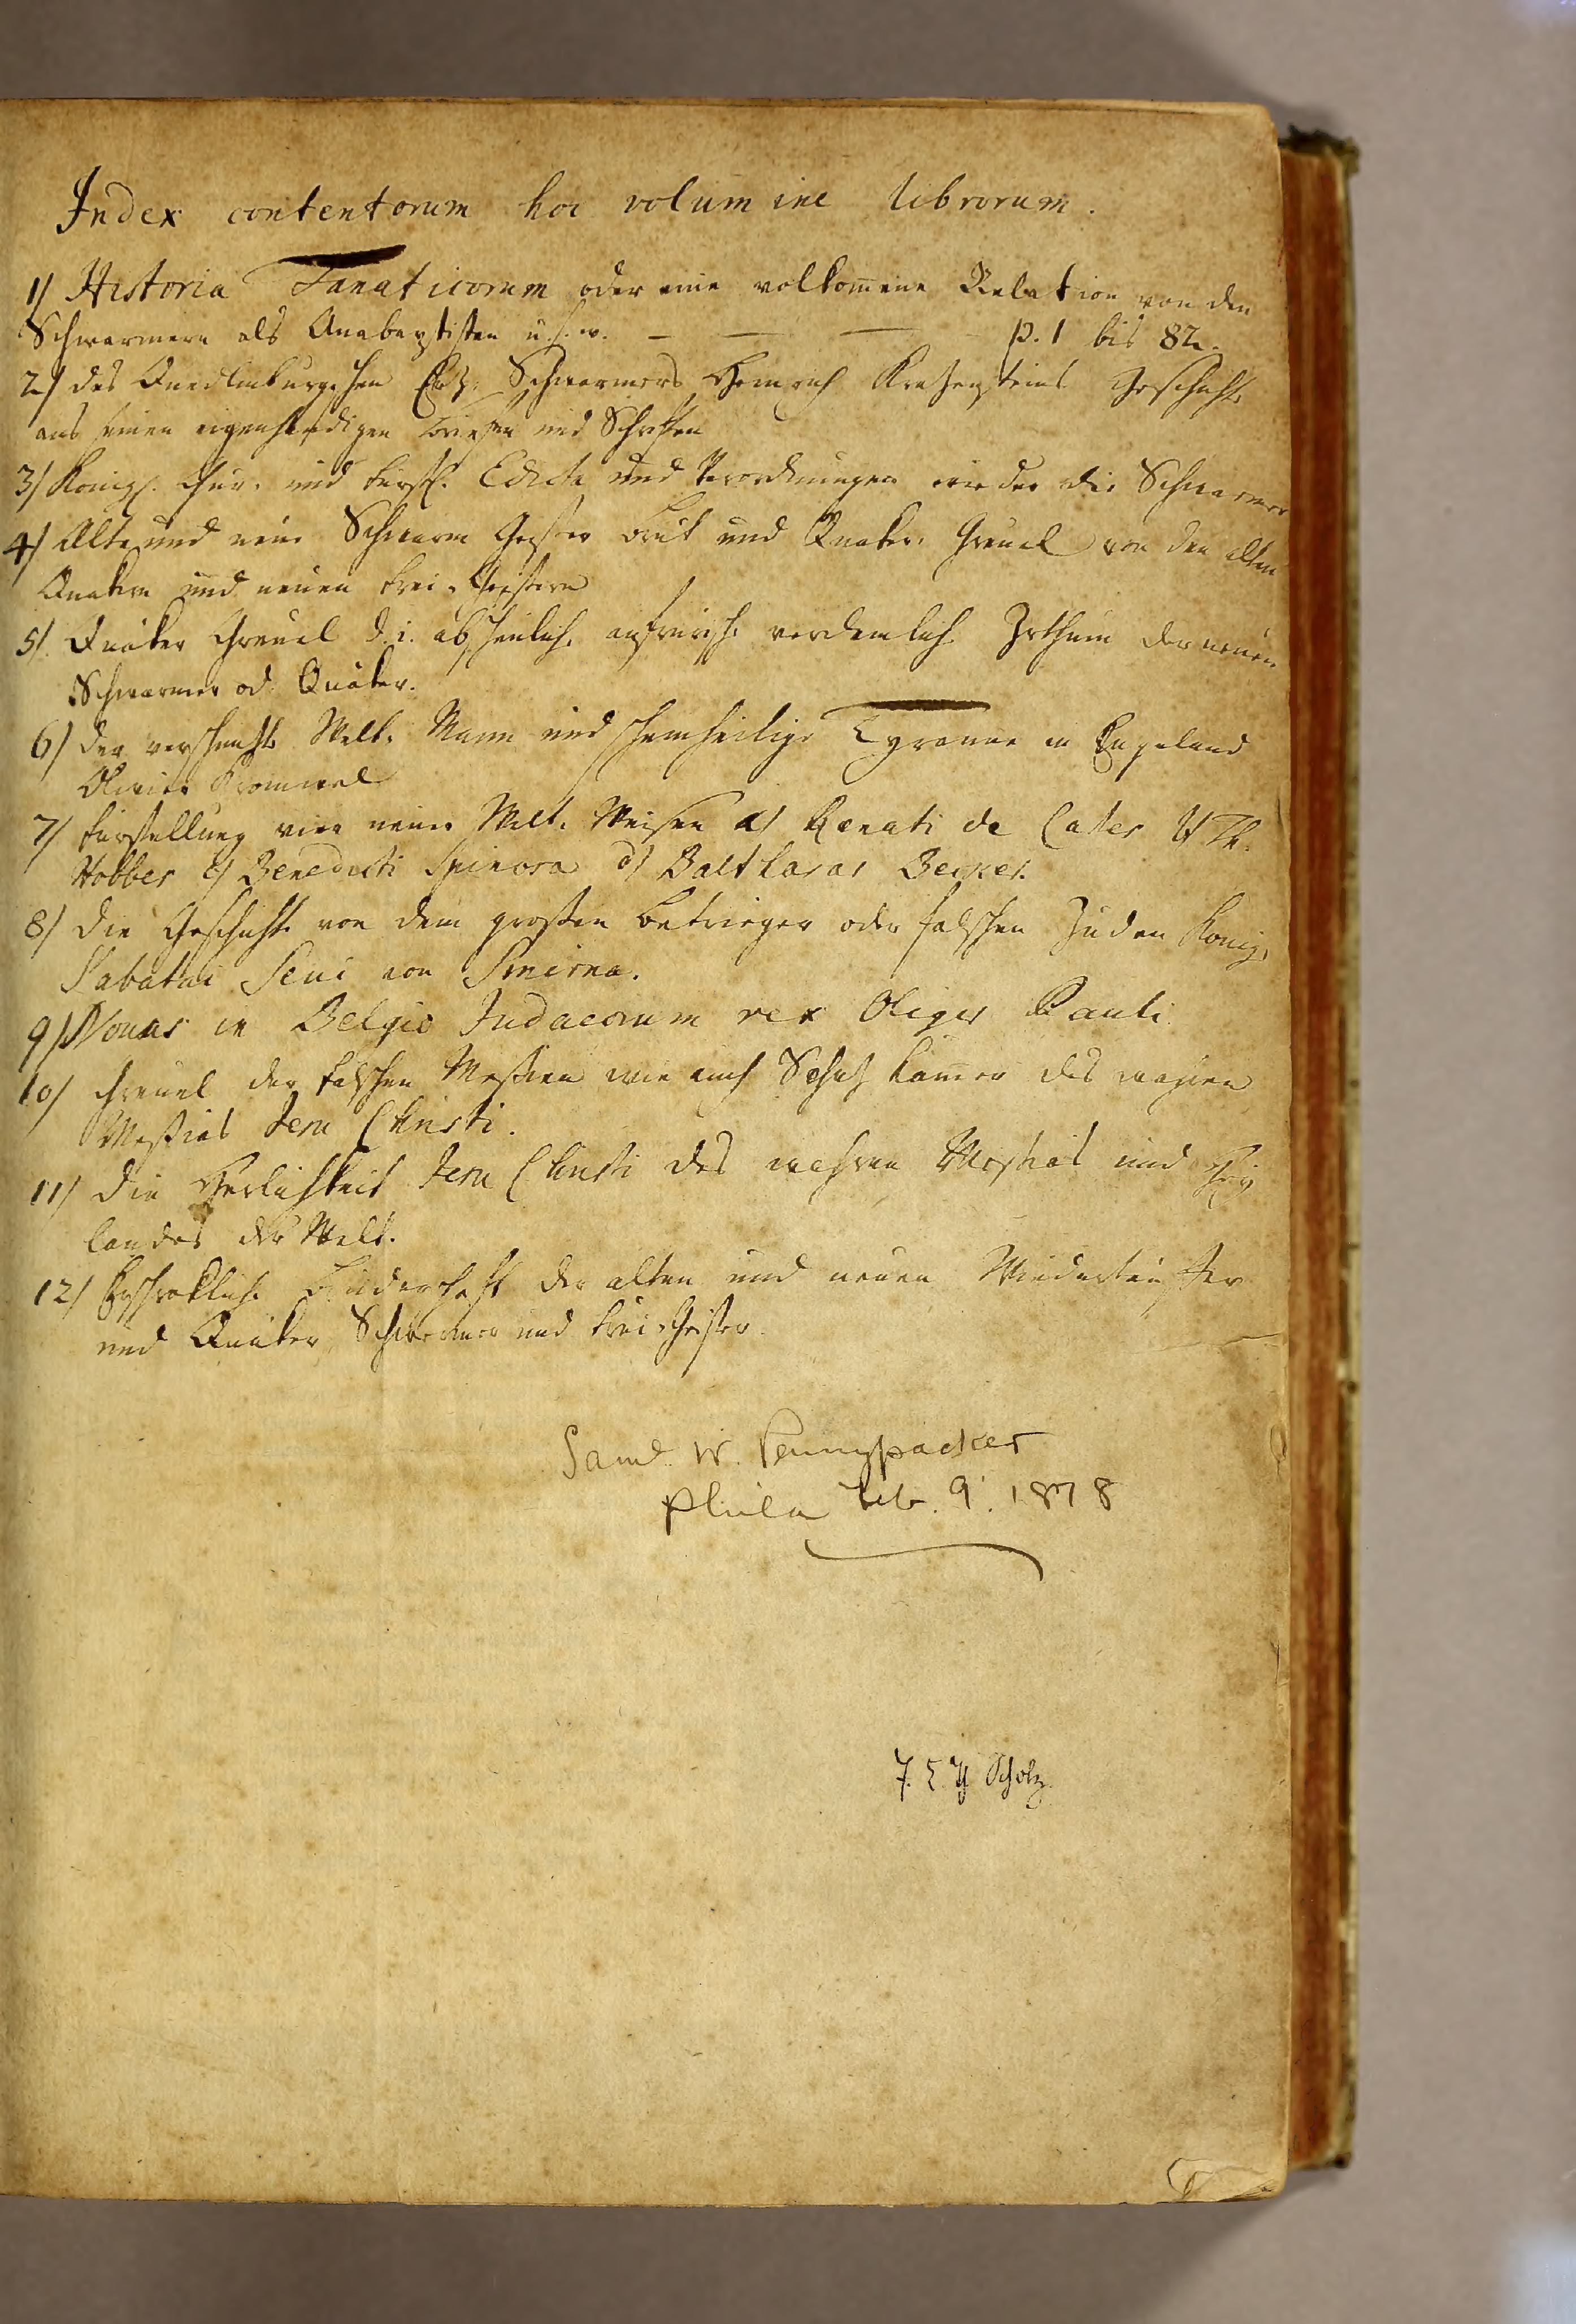 Index contentorum hoc volumine librorum.
1/ Historia Fanaticorum oder eine volkom̄ene Relation von den
Schwarmern als Anabaptisten u.s.w. — — — p. 1 bis 82.
2/ des Quedlinburgschen Erz-Schwarmers Heinrich Kratzensteins Geschichte
aus seinen eigenhändigen Briefen und Schriften
3/ Königl. Chur- und fürstl. Edicte und Verordnungen wieder die Schwarmer
4/ Alte und neue Schwarm Geister Brut und Quaker-Greuel von den alten
Quakern und neuen Frei-Geistern
5/ Quäker Greuel d. i. abscheuliche aufrürische verdamliche Irthum der neuen
Schwarmer od. Quäker.
6/ der verschmizte Welt-Mann und scheinheilige Tyranne in Engeland
Olivier Cromwel
7/ Fürstellung vier neuer Welt-Weisen a/ Renati de Cates b/ Th.
Hobbes c/ Benedicti Spinosa d/ Balthasar Becker.
8/ Die Geschichte von dem grosten Betrieger oder falschen Juden König,
Sabatai Sevi von Smirna.
9/ Novus in Belgio Judaeorum rex Oliger Pauli
10/ Greuel der falschen Messien wie auch Schatz Kam̄er des wahren
Messias Jesu Christi.
11/ Die Herlichkeit Jesu Christi des wahren Messias und Hey
landes der Welt.
12/ Erschrekliche Brüderschaft der alten und neuen Wiedertäuffer
und Quäker Schwermer und Frei-Geister.
Saml. W. Pennypacker
Phila Feb. 9. 1878
Scholz